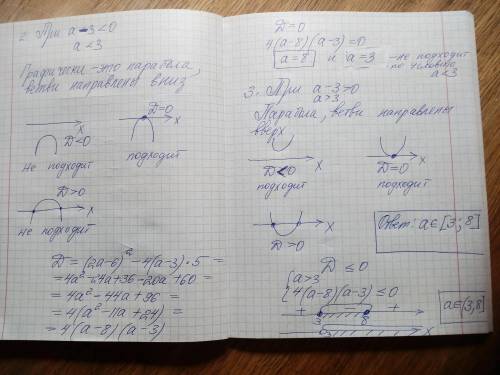 2. При a-3<0
a<3
Графически - это парабола,
ветви направлены вниз
x
D<0
не подходит
D=0
x
подходит
D>0
x
не подходит
D=(2a-6)²-4(a-3)·5=
=4a²-24a+36-20a+60=
=4a²-44a+96=
=4(a²-11a+24)=
=4(a-8)(a-3)
D=0
4(a-8)(a-3)=0
a=8 и a=3 - не подходит
по условию
a<3
3. При a-3>0
a>3
Парабола, ветви направлены
вверх
x
D<0
подходит
x
D=0
подходит
x
D>0
Ответ: a∈[3;8]
D≤0
{a>3
{4(a-8)(a-3)≤0
+ 3 - 8 +
3 x
a∈(3,8]